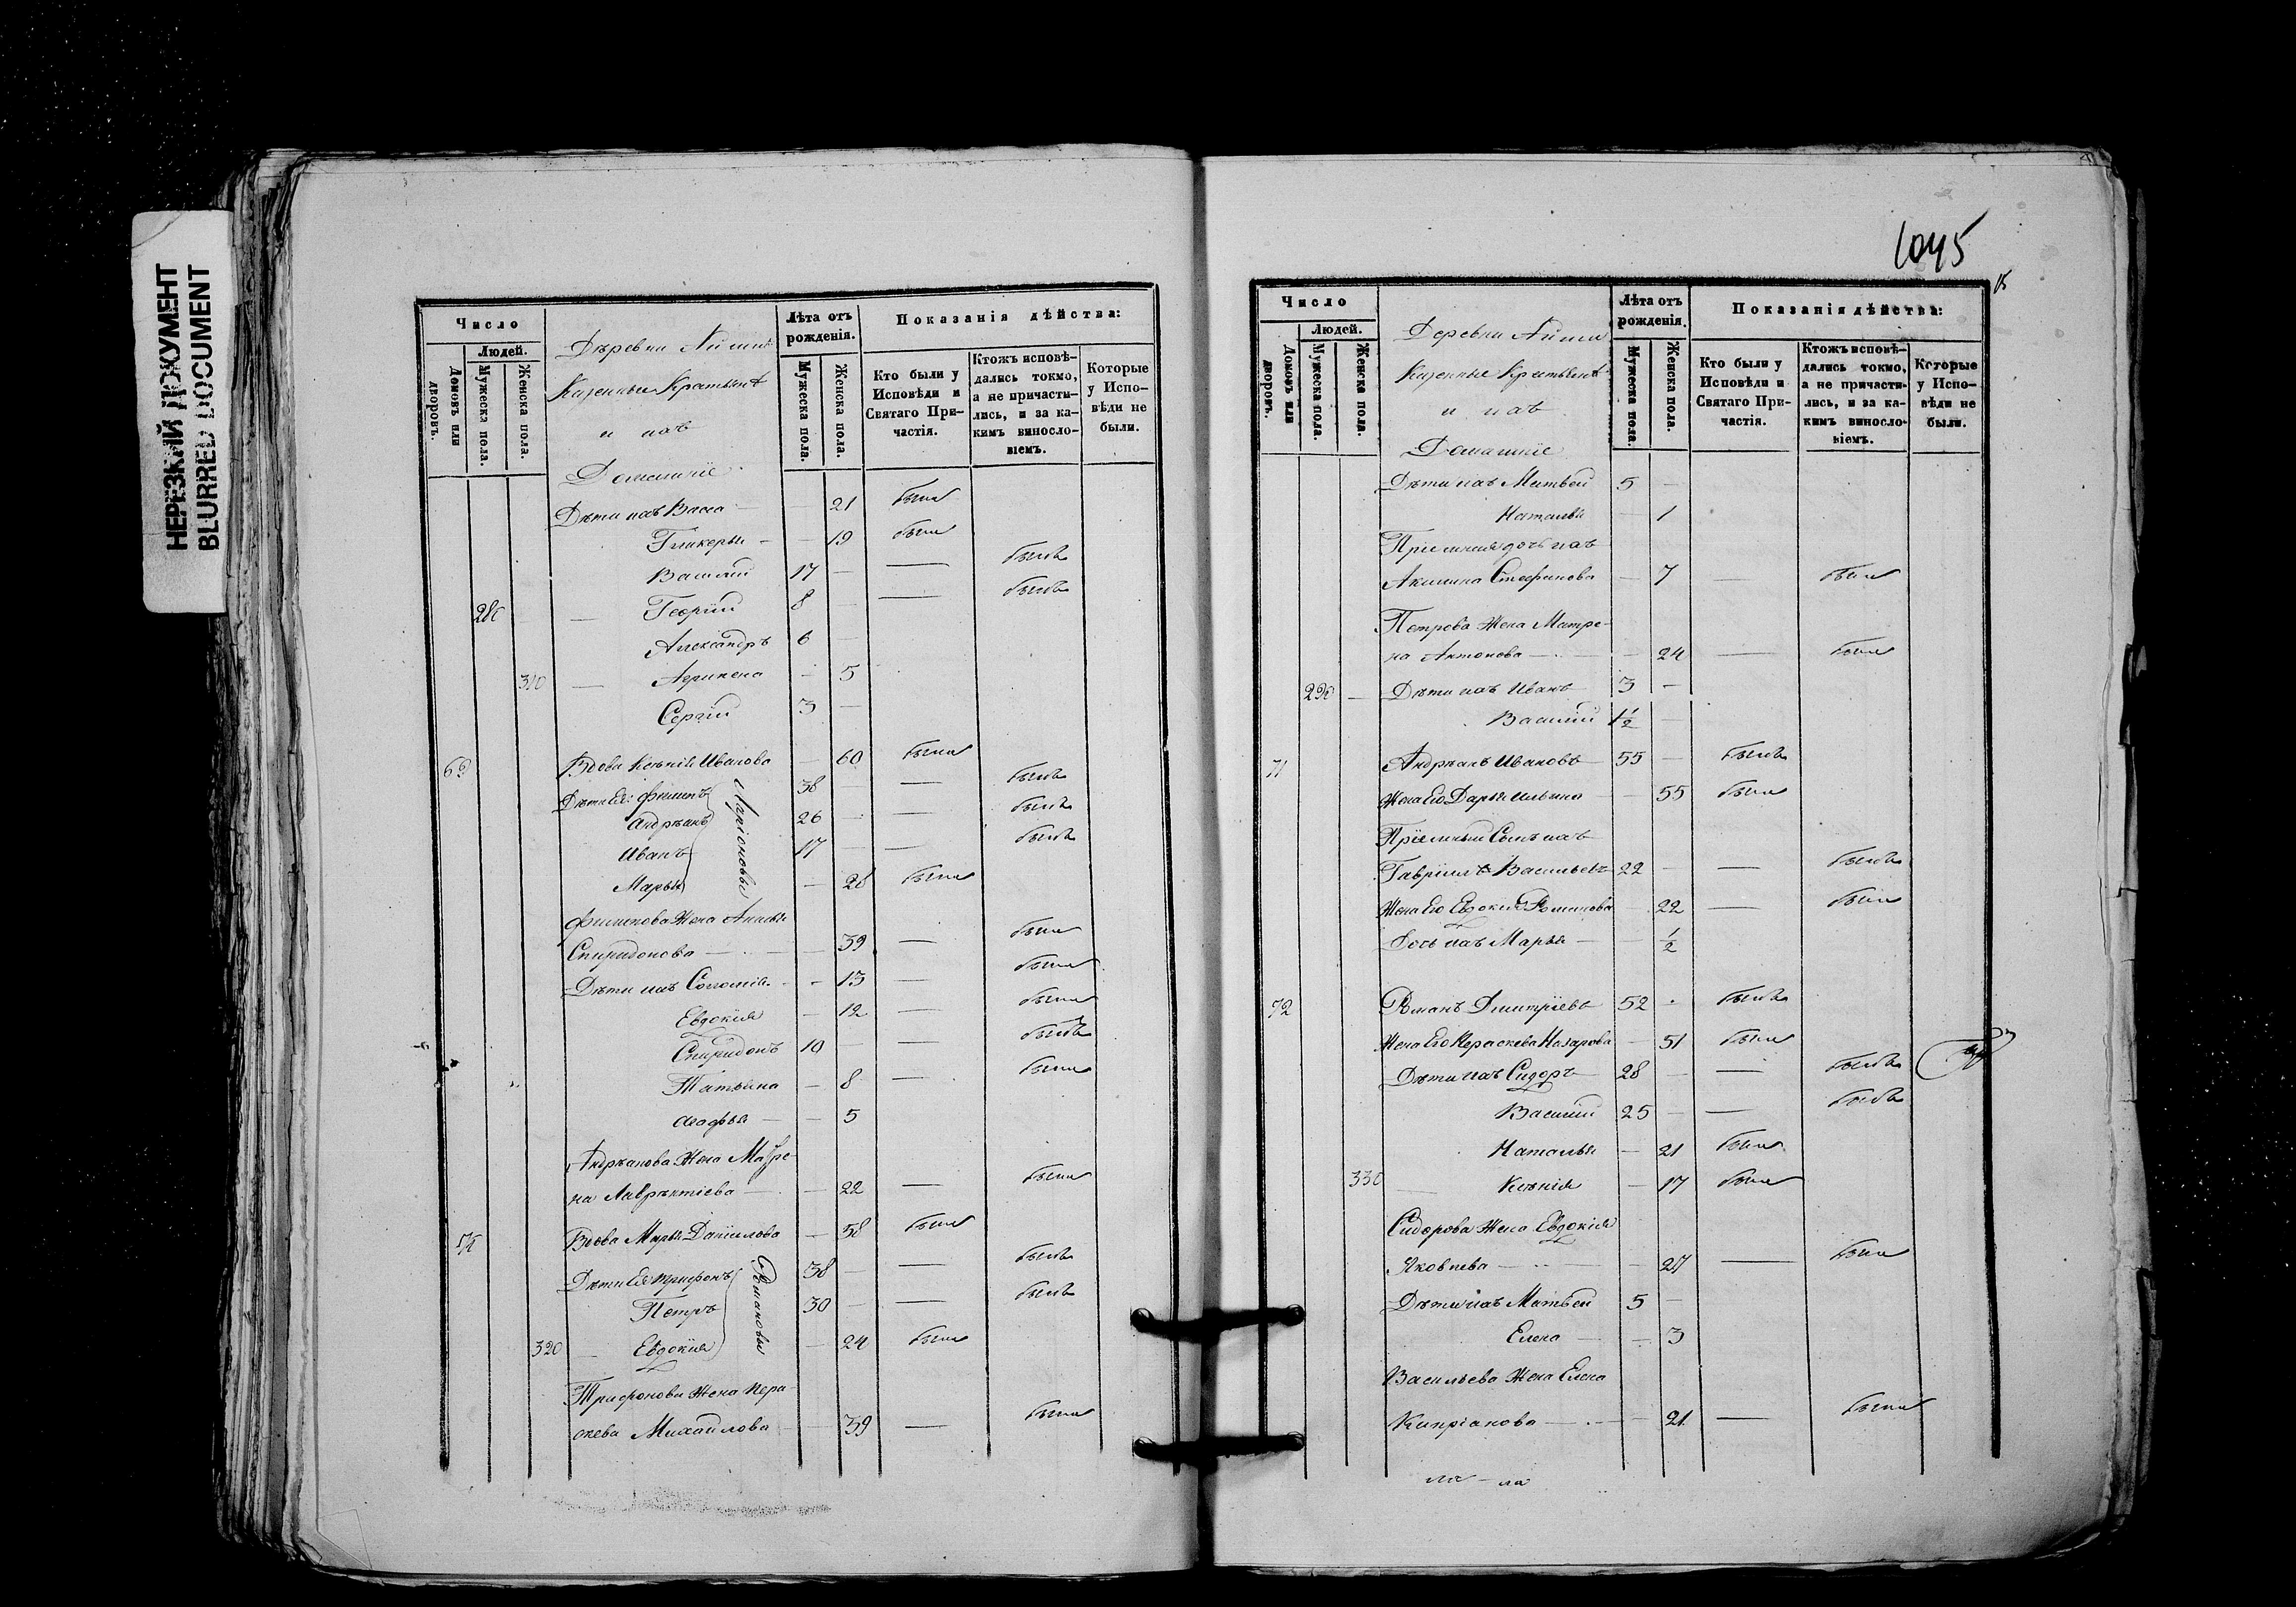 НЕРЕЗКИЙ ДОКУМЕНТ
BLURRED DOCUMENT
Число
Людей.
Домовъ или дворовъ.
Мужеска пола.
Женска пола.
Деревни Айши
Казенные Крестьяне
и ихъ
Домашніе
Лѣта отъ рожденія.
Мужеска пола.
Женска пола.
Показанія дѣйства:
Кто были у Исповѣди и Святаго Причастія.
Ктожъ исповѣдались токмо, а не причастились, и за какимъ винословіемъ.
Которые у Исповѣди не были.
Дѣти ихъ Васса — — 21 была
Гликерья — — 19 была
Василій 17 — — былъ
280 — Георгій 8 — — былъ
Александръ 6 —
310 — Агрипена — 5
Сергій 3 —
69 Вдова Ксѣнія Иванова — 60 была
Дѣти Ея: Филипъ 38 — — былъ
Андреанъ 26 — — былъ
Иванъ 17 — — былъ
Марья — 28 была
Ларіоновы
Филипова Жена
Спиридонова — — 39 — была
Дѣти ихъ Соломія — 13 — была
Евдокия — 12 — была
Спиридонъ 10 — — былъ
Татьяна — 8 — была
Агафья — — 5
Андреанова Жена Матре-
на — — 22 — была
Вдова Марья Даніилова — 58 была
Дѣти Ея Трифонъ 38 — — былъ
Петръ 30 — — былъ
320 — Евдокия — 24 была
Романовы
Трифонова Жена Пера-
скева Михайлова — 39 — была
1045
Число
Людей.
Домовъ или дворовъ.
Мужеска пола.
Женска пола.
Деревни Айши
Казенные Крестьяне
и ихъ
Домашніе
Лѣта отъ рожденія.
Мужеска пола.
Женска пола.
Показанія дѣйства:
Кто были у Исповѣди и Святаго Причастія.
Ктожъ исповѣдались токмо, а не причастились, и за какимъ винословіемъ.
Которые у Исповѣди не были.
Дѣти ихъ Матвей 5 —
Наталья — 1
Пріемная дочь ихъ
Акилина Стефанова — 7 — была
Петрова Жена Матре-
на Антонова — — 24 — была
290 — Дѣти ихъ Иванъ 3 —
Василій 1½ —
71 Андреанъ Ивановъ 55 — былъ
Жена Его Дарья Ильина — 55 была
Пріемный Сынъ ихъ
Гавріилъ Васильевъ 22 — — былъ
Жена Его Евдокия Романова — 22 — была
Дочь ихъ Марья — — ½
72 Романъ Дмитріевъ 52 — былъ
Жена Его Пераскева Назарова — 51 была
Дѣти ихъ Сидоръ 28 — — былъ
Василій 25 — — былъ
Наталья — 21 была
330 — Ксѣнія — 17 была
Сидорова Жена Евдокия
Яковлева — — 27 — была
Дѣти ихъ Матвей 5 —
Елена — — 3
Васильева Жена Елена
Кипріанова — — 21 — была